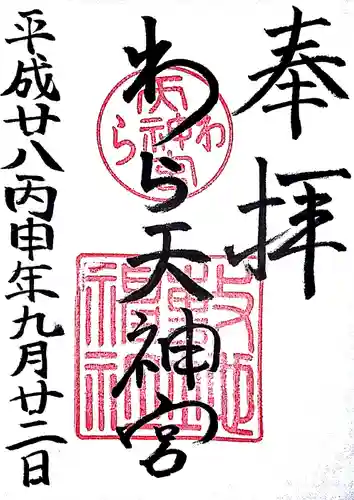 奉拝
わら天神宮
平成廿八丙申年九月廿二日
わら
天神宮
敷地神社